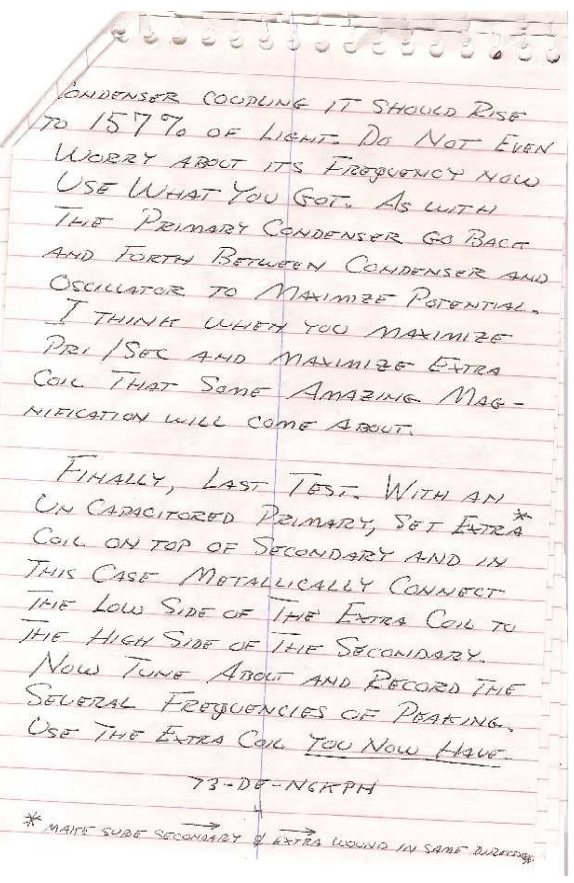 CONDENSER COUPLING IT SHOULD RISE
TO 157% OF LIGHT. DO NOT EVEN
WORRY ABOUT ITS FREQUENCY NOW
USE WHAT YOU GOT. AS WITH
THE PRIMARY CONDENSER GO BACK
AND FORTH BETWEEN CONDENSER AND
OSCILLATOR TO MAXIMIZE POTENTIAL.
I THINK WHEN YOU MAXIMIZE
PRI/SEC AND MAXIMIZE EXTRA
COIL THAT SOME AMAZING MAG-
NIFICATION WILL COME ABOUT.
FINALLY, LAST TEST. WITH AN
UN CAPACITORED PRIMARY, SET EXTRA*
COIL ON TOP OF SECONDARY AND IN
THIS CASE METALLICALLY CONNECT
THE LOW SIDE OF THE EXTRA COIL TO
THE HIGH SIDE OF THE SECONDARY.
NOW TUNE ABOUT AND RECORD THE
SEVERAL FREQUENCIES OF PEAKING.
USE THE EXTRA COIL YOU NOW HAVE.
73-DE-N6KPH
* MAKE SURE SECONDARY & EXTRA WOUND IN SAME DIRECTION